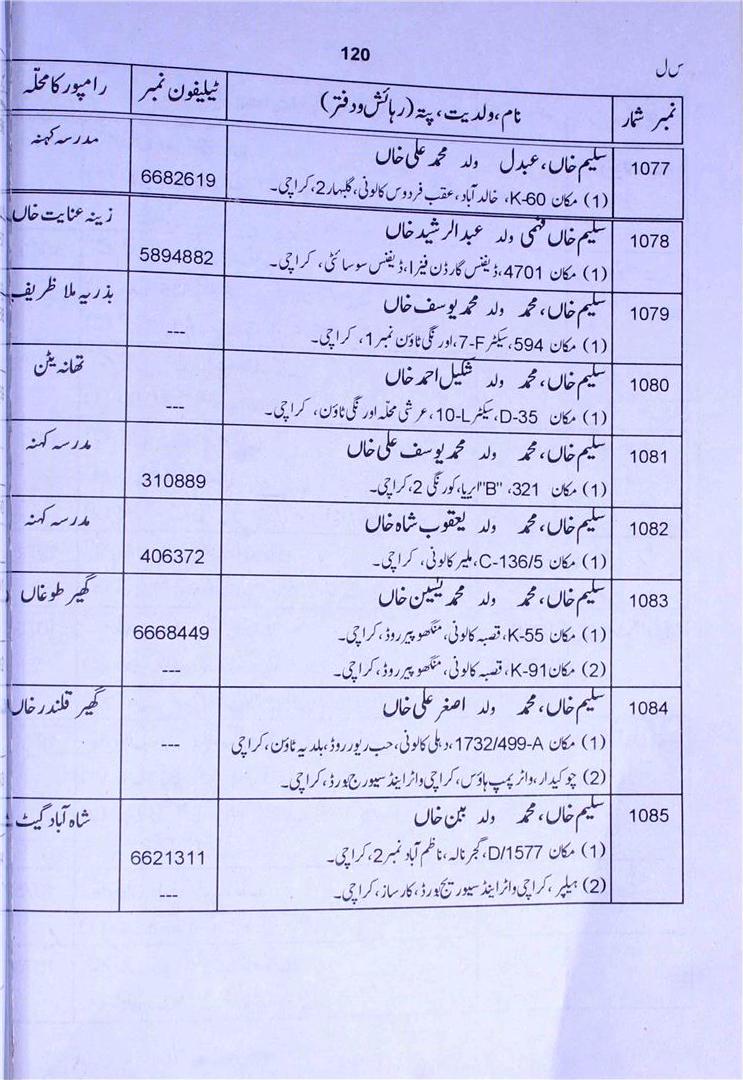 120
س ل
نمبر شمار نام، ولدیت، پتہ (رہائش و دفتر) ٹیلیفون نمبر رامپور کا محلّہ
1077 سلیم خاں، عبدل ولد محمد علی خاں مدرسہ کہنہ
(1) مکان K-60، خالد آباد، عقب فردوس کالونی، گلبہار 2، کراچی۔ 6682619
1078 سلیم خاں فہمی ولد عبدالرشید خاں زینہ عنایت خاں
(1) مکان 4701، ڈیفنس گارڈن فیز I، ڈیفنس سوسائٹی، کراچی۔ 5894882
1079 سلیم خاں، محمد ولد محمد یوسف خاں بذریہ ملا ظریف
(1) مکان 594، سیکٹر 7-F، اورنگی ٹاؤن نمبر 1، کراچی۔ ---
1080 سلیم خاں، محمد ولد شکیل احمد خاں تھانہ ٹین
(1) مکان D-35، سیکٹر 10-L، عرشی محلہ اورنگی ٹاؤن، کراچی۔ ---
1081 سلیم خاں، محمد ولد محمد یوسف علی خاں مدرسہ کہنہ
(1) مکان 321، "B" ایریا، کورنگی 2، کراچی۔ 310889
1082 سلیم خاں، محمد ولد یعقوب شاہ خاں مدرسہ کہنہ
(1) مکان C-136/5، ملیر کالونی، کراچی۔ 406372
1083 سلیم خاں، محمد ولد محمد یٰسین خاں گھیر طوغاں
(1) مکان K-55، قصبہ کالونی، منگھو پیر روڈ، کراچی۔ 6668449
(2) مکان K-91، قصبہ کالونی، منگھو پیر روڈ، کراچی۔ ---
1084 سلیم خاں، محمد ولد اصغر علی خاں گھیر قلندر خاں
(1) مکان 1732/499-A، دہلی کالونی، حب ریور روڈ، بلدیہ ٹاؤن، کراچی ---
(2) چوکیدار، واٹر پمپ ہاؤس، کراچی واٹر اینڈ سیورج بورڈ، کراچی۔
1085 سلیم خاں، محمد ولد بین خاں شاہ آباد گیٹ
(1) مکان D/1577، گجر نالہ، ناظم آباد نمبر 2، کراچی۔ 6621311
(2) ہیلپر، کراچی واٹر اینڈ سیوریج بورڈ، کارساز، کراچی۔ ---